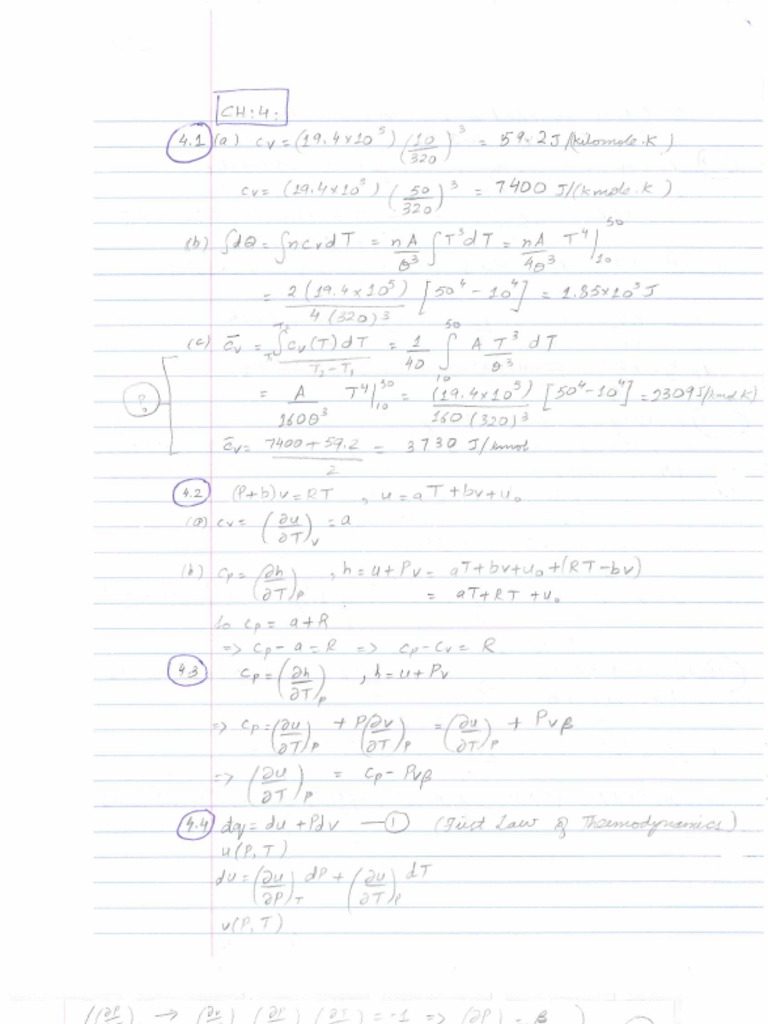 CH:4:
4.1 (a) cv = (19.4×10⁵) (10/320)³ = 59.2 J/(kilomole.K)
cv = (19.4×10⁵) (50/320)³ = 7400 J/(kmole.K)
(b) ∫dQ = ∫ncvdT = nA/θ³ ∫T³dT = nA/4θ³ T⁴|₁₀⁵⁰
= 2(19.4×10⁵)/4(320)³ [50⁴ - 10⁴] = 1.85×10⁵ J
(c) c̄v = ∫cv(T)dT/T₂-T₁ = 1/40 ∫₁₀⁵⁰ A T³/θ³ dT
? = A/160θ³ T⁴|₁₀⁵⁰ = (19.4×10⁵)/160(320)³ [50⁴-10⁴] = 2309 J/(kmol.K)
c̄v = 7400+59.2/2 = 3730 J/kmol
4.2 (P+b)v = RT , u = aT+bv+u₀
(a) cv = (∂u/∂T)v = a
(b) cp = (∂h/∂T)P , h = u+Pv = aT+bv+u₀+(RT-bv)
= aT+RT+u₀
so cp = a+R
=> cp-a = R => cp-cv = R
4.3 cp = (∂h/∂T)P , h = u+Pv
=> cp = (∂u/∂T)P + P(∂v/∂T)P = (∂u/∂T)P + Pvβ
=> (∂u/∂T)P = cp - Pvβ
4.4 dq = du + Pdv — ① (First Law of Thermodynamics)
u(P,T)
du = (∂u/∂P)T dP + (∂u/∂T)P dT
v(P,T)